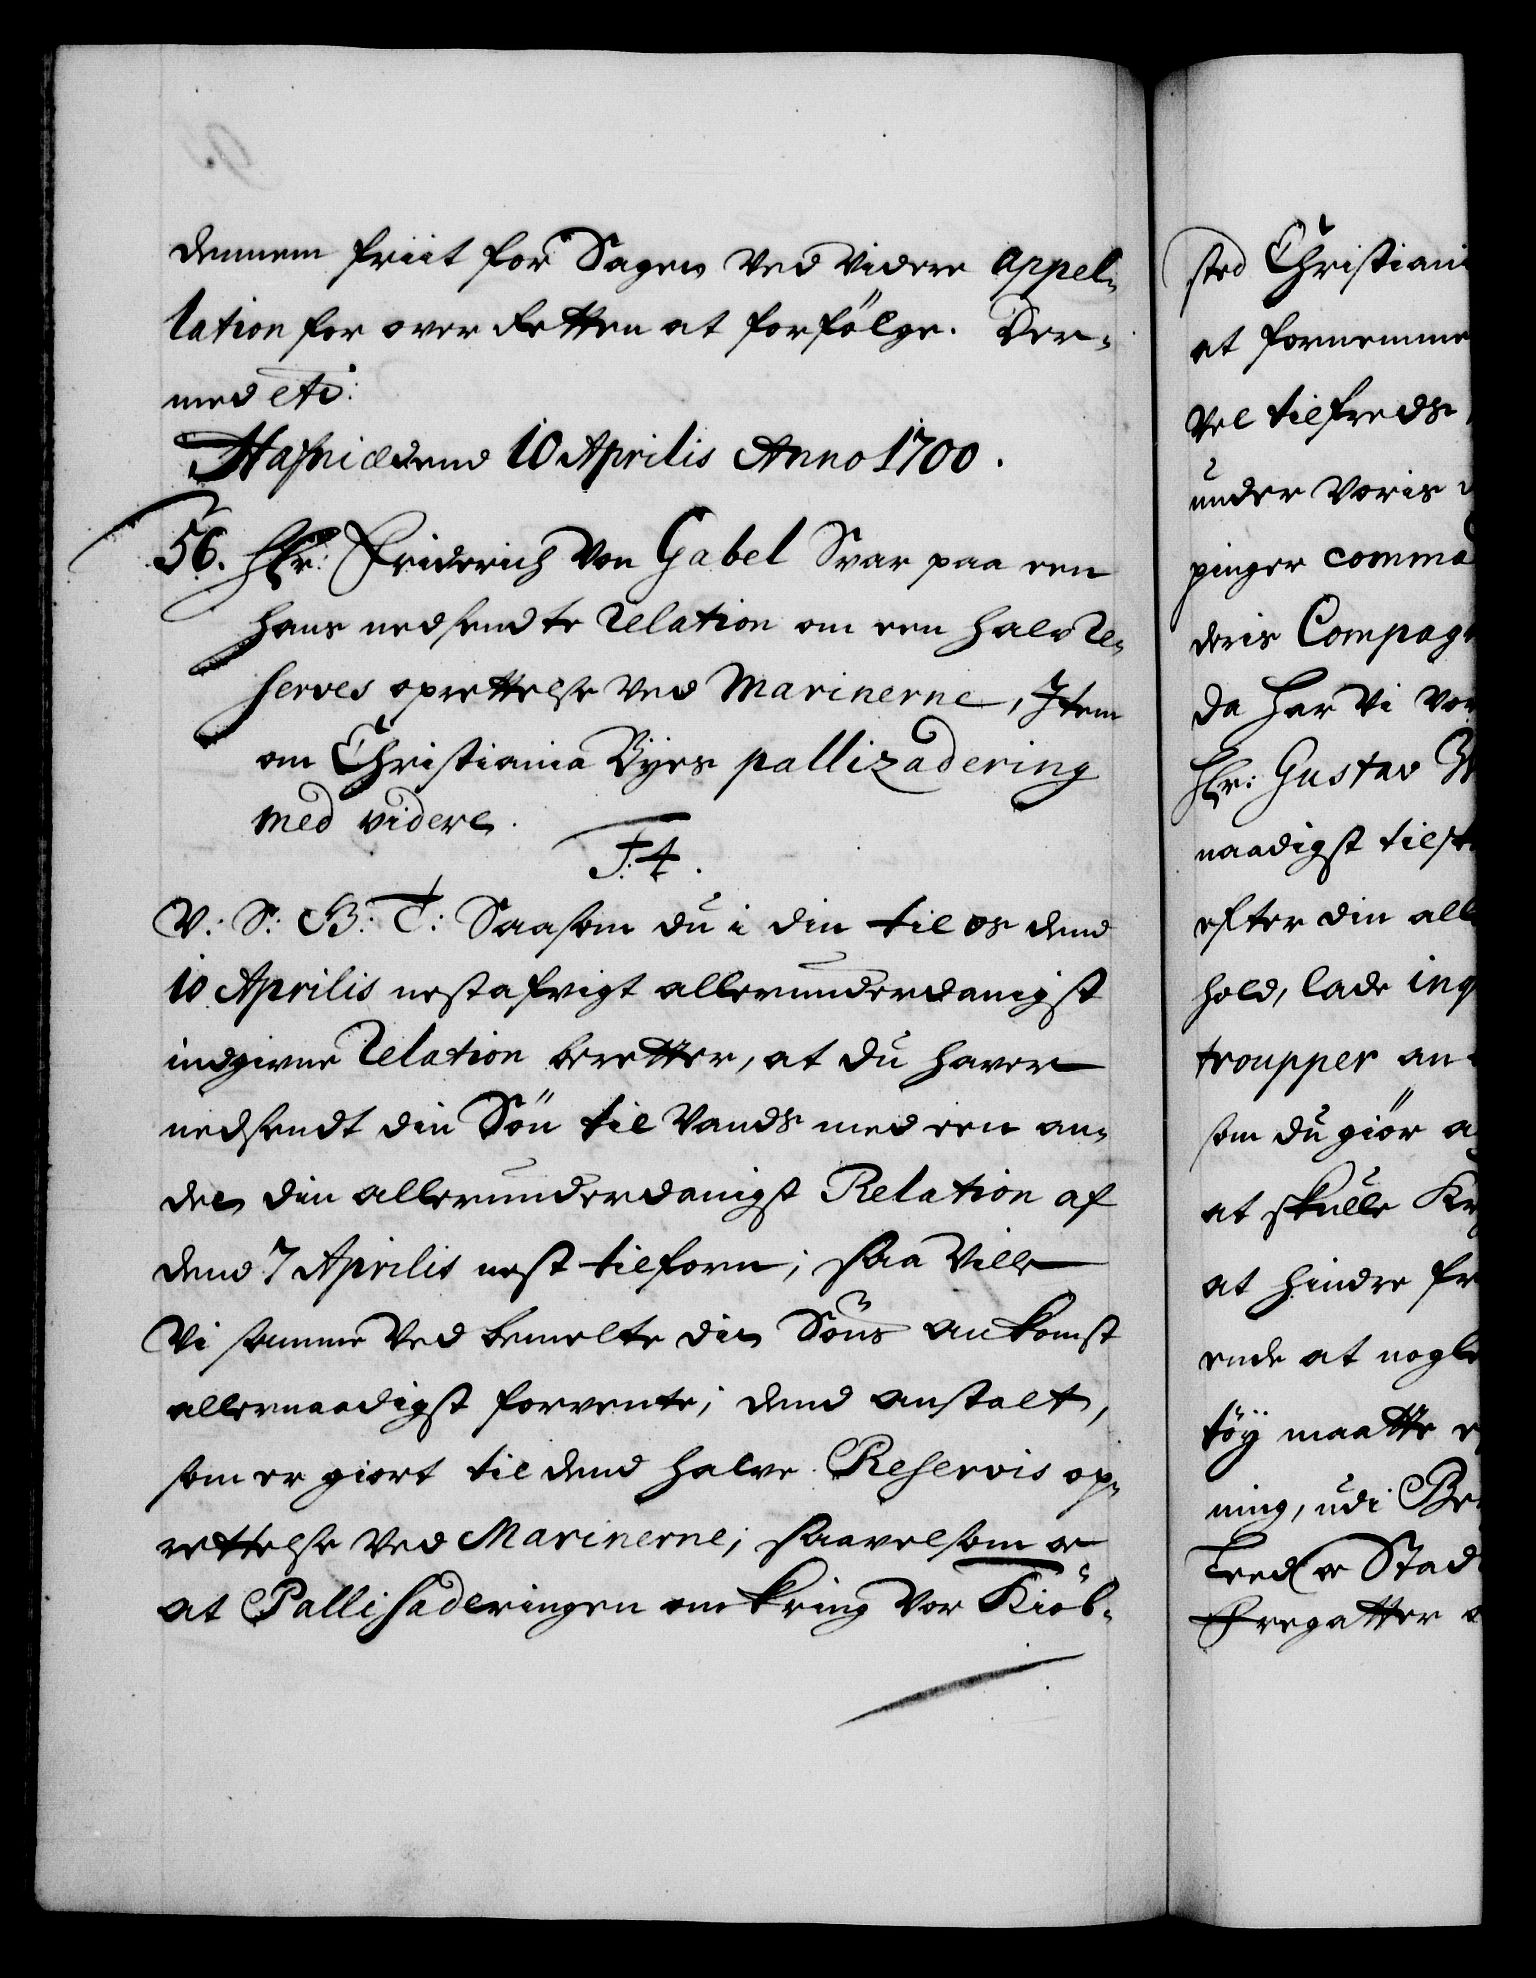 dennem friit for Sagen ved videre appel-
lation for over Retten at forfölge. Der-
med etc:
Hafniæ dend 10 Aprilis Anno 1700.
56. Hr: Friderich von Gabel Svar paa een
hans nedsendte Relation om een halv Re-
serves oprettelse ved Marinerne, Item
om Christiania Byes pallizadering
med videre.
F. 4.
V: S: G: T: Saasom du i din til os dend
10 Aprilis nestafvigt allerunderdanigst
indgivne Relation beretter, at du haver
nedsendt din Sön til Vands med een an-
den din allerunderdanigst Relation af
dend 7 Aprilis nest tilforn; saa ville
Vi samme ved bemelte din Söns ankomst
allernaadigst forvente; dend anstalt,
som er giort til dend halve Reservis op-
rettelse ved Marinerne; saavelsom og
at Pallisaderingen omkring vor Kiöb-
sted Christiani
at fornemme
vel tilfreds
under voris
pinger comma
deris Compag
da har Vi vor
Hr: Gustav W
naadigst tilst
efter din all
hold, lade inq
troupper an
som du giör a
at skulle Kr
at hindre fr
ende at nogle
töy maatte
ning, udi
og Stad
Fregatter